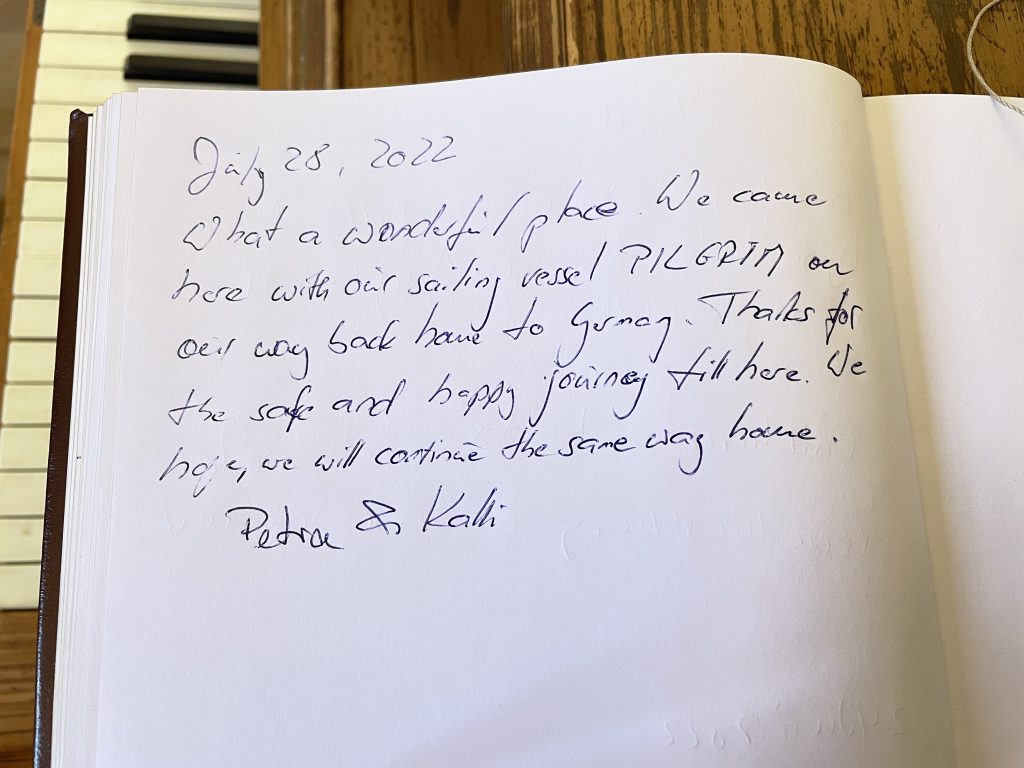 July 28, 2022
What a wonderful place. We came
here with our sailing vessel PILGRIM on
our way back home to Germany. Thanks for
the safe and happy journey till here. We
hope, we will continue the same way home.
Petra & Kalli